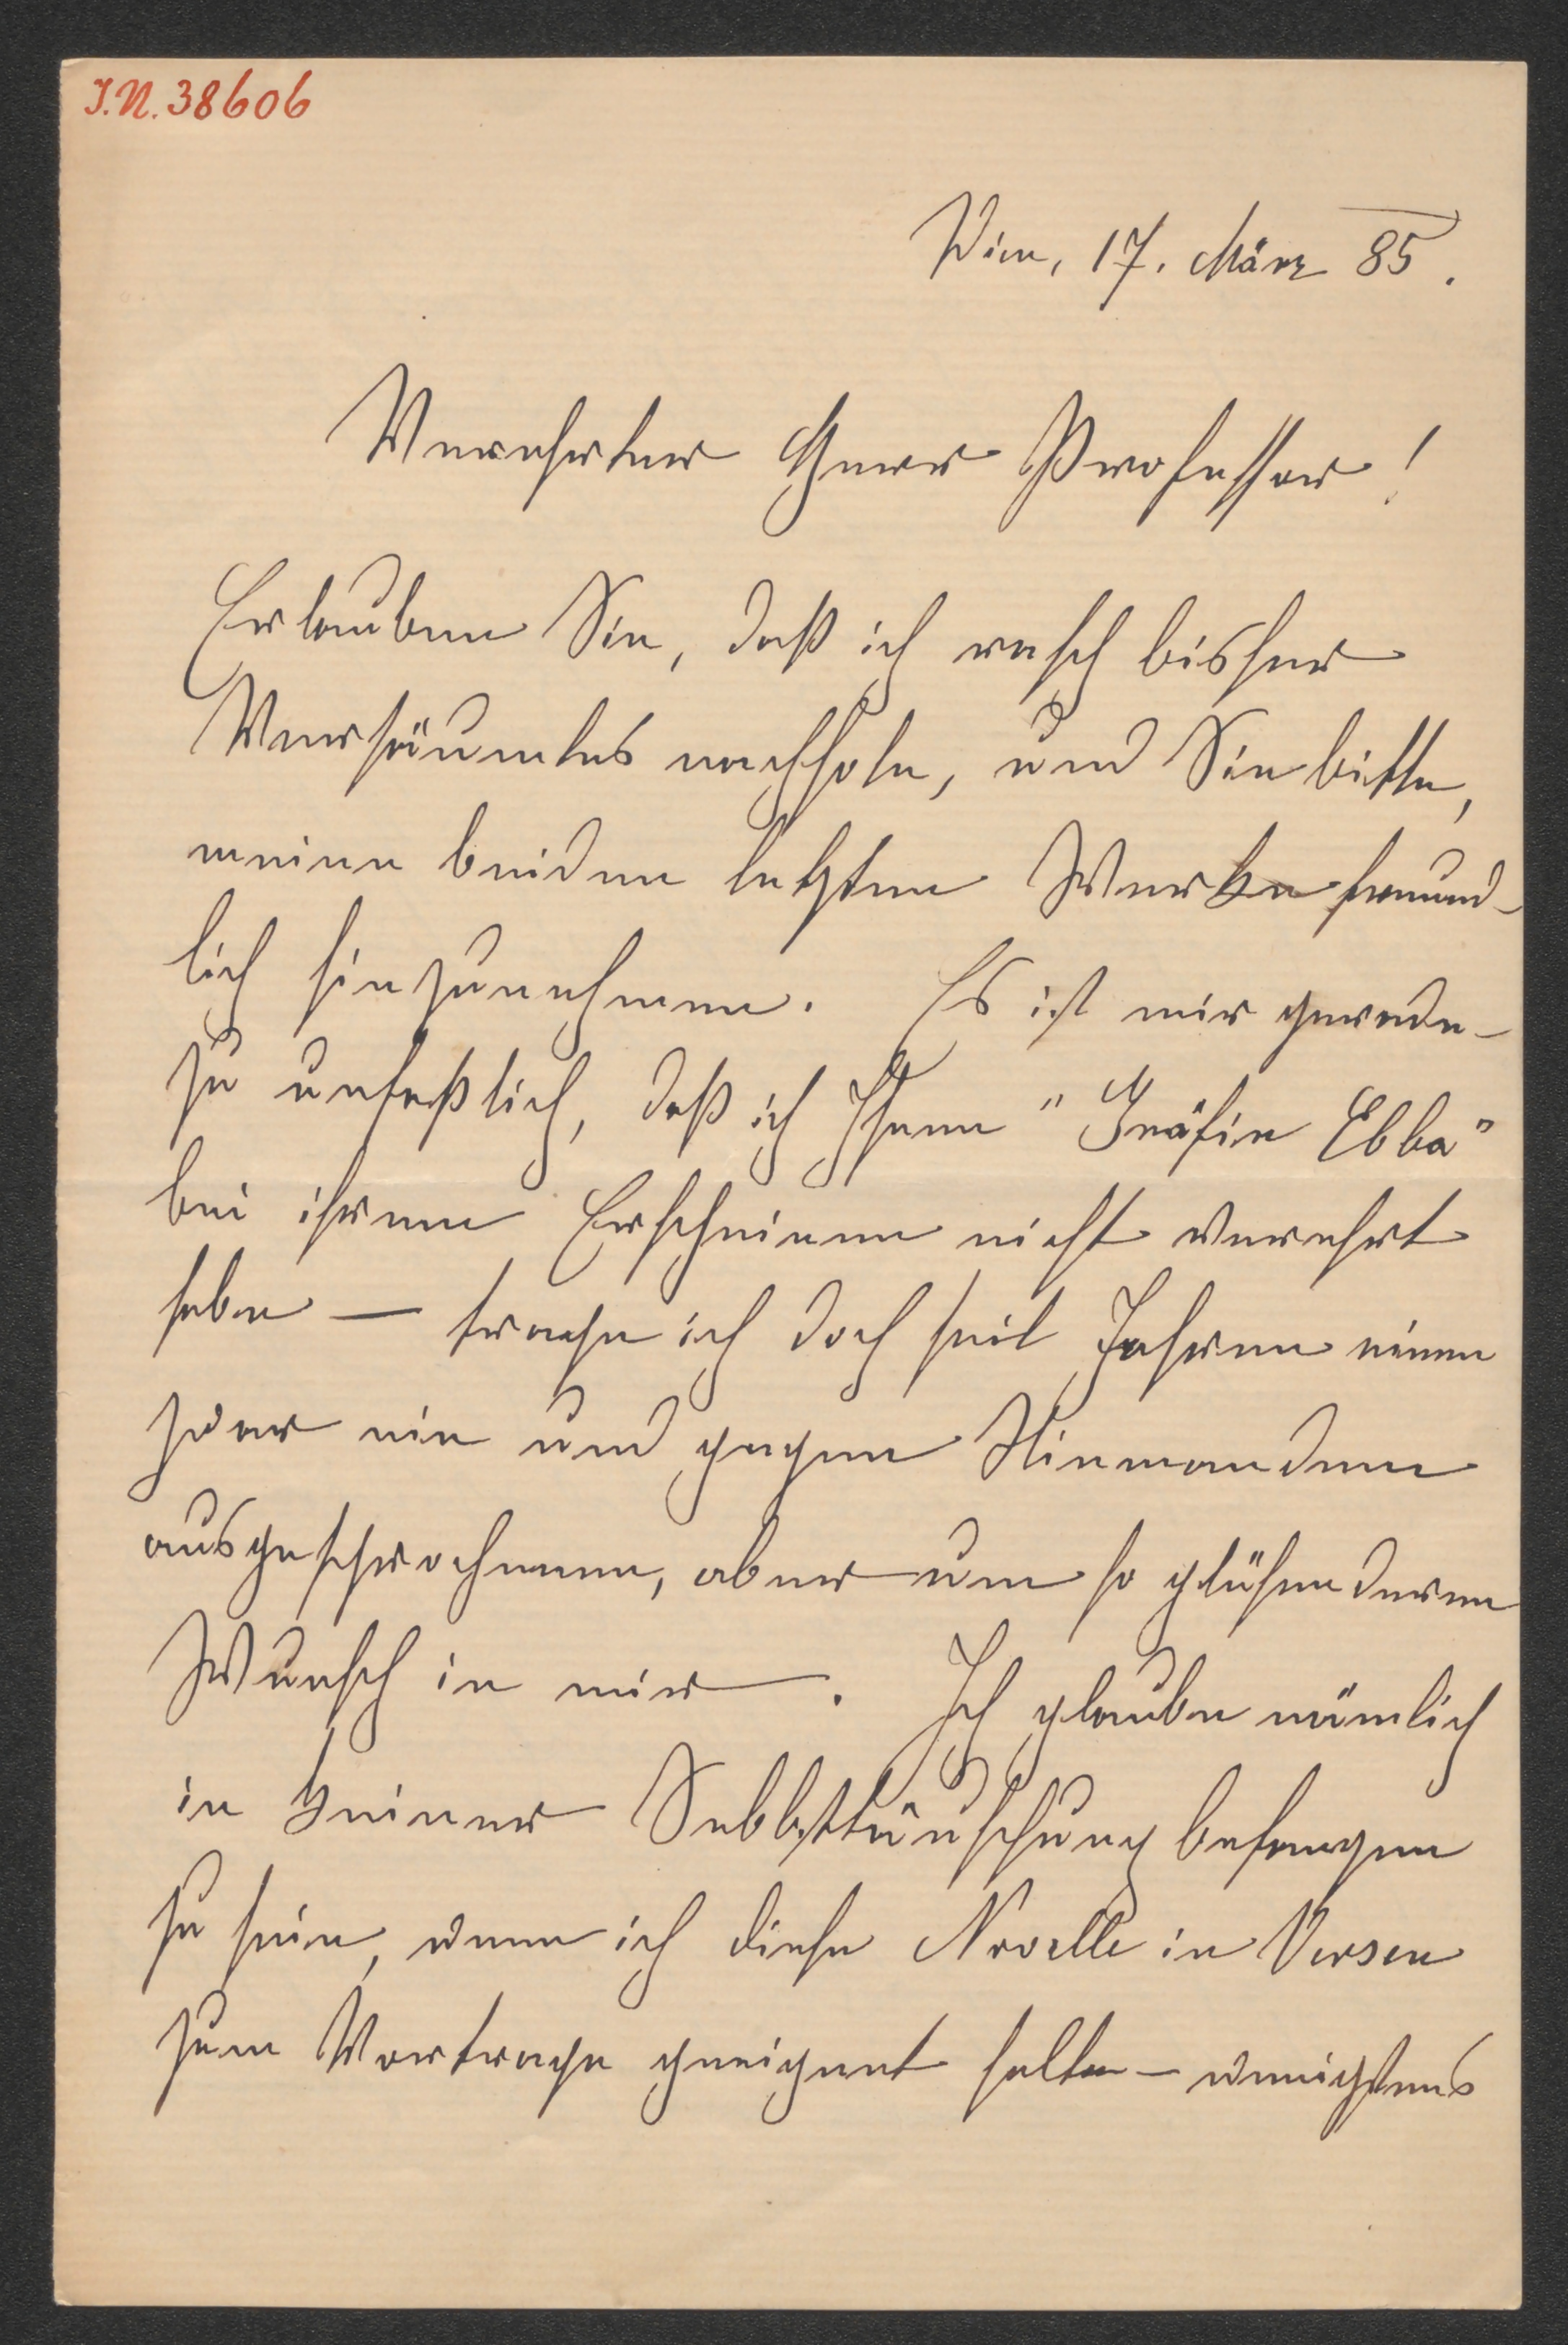 I.N. 38606
Wien, 17. März 85.
Verehrter Herr Professor!
Erlauben Sie, daß ich rasch bisher
Versäumtes nachhole, und Sie bitte,
meine beiden letzten Werke freund-
lich hinzunehmen. Es ist mir gerade-
zu unfaßlich, daß ich Ihnen "Gräfin Ebba"
bei ihrem Erscheinen nicht verehrt
habe — trage ich doch seit Jahren einen
zwar nie und gegen Niemanden
ausgesprochenen, aber um so glühenderen
Wunsch in mir. Ich glaube nämlich
in keiner Selbsttäuschung befangen
zu sein, wenn ich diese Novelle in Versen
zum Vortrage geeignet halte — wenigstens